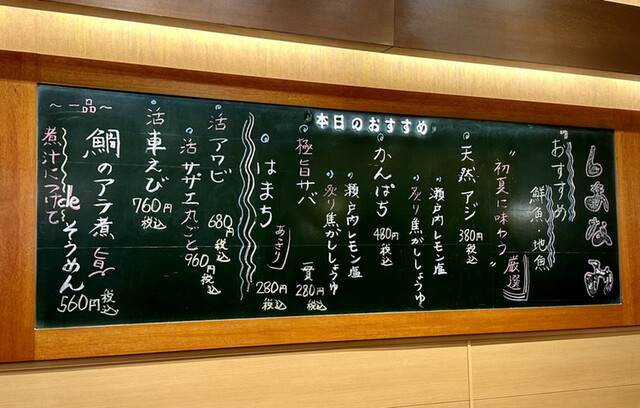 本日のおすすめ
しまなみ
おすすめ
鮮魚・地魚
"初夏に味わう"
厳選
天然アジ 380円税込
瀬戸内レモン塩
炙り焦がししょうゆ
かんぱち 480円税込
瀬戸内レモン塩
炙り焦がししょうゆ
極旨サバ 一貫 280円税込
はまち あっさり 280円税込
活アワビ 680円税込
活サザエ丸ごと 960円税込
活車えび 760円税込
～一品～
鯛のアラ煮 旨
煮汁につけて
de そうめん 560円税込